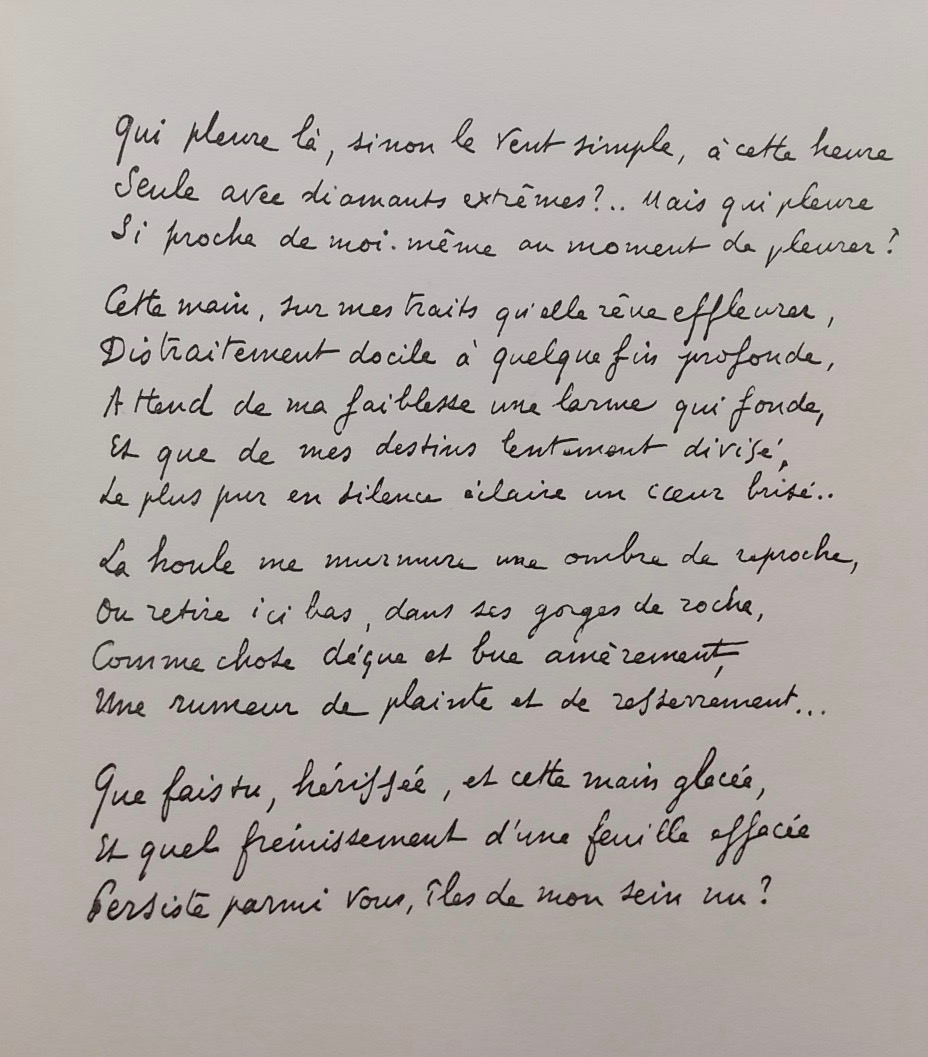 Qui pleure là, sinon le vent simple, à cette heure
Seule avec diamants extrêmes?.. Mais qui pleure
Si proche de moi-même au moment de pleurer?
Cette main, sur mes traits qu'elle rêve effleurer,
Distraitement docile à quelque fin profonde,
Attend de ma faiblesse une larme qui fonde,
Et que de mes destins lentement divisé,
Le plus pur en silence éclaire un cœur brisé..
La houle me murmure une ombre de reproche,
Ou retire ici bas, dans ses gorges de roche,
Comme chose déçue et bue amèrement,
Une rumeur de plainte et de resserrement...
Que fais tu, hérissée, et cette main glacée,
Et quel frémissement d'une feuille effacée
Persiste parmi vous, îles de mon sein nu?